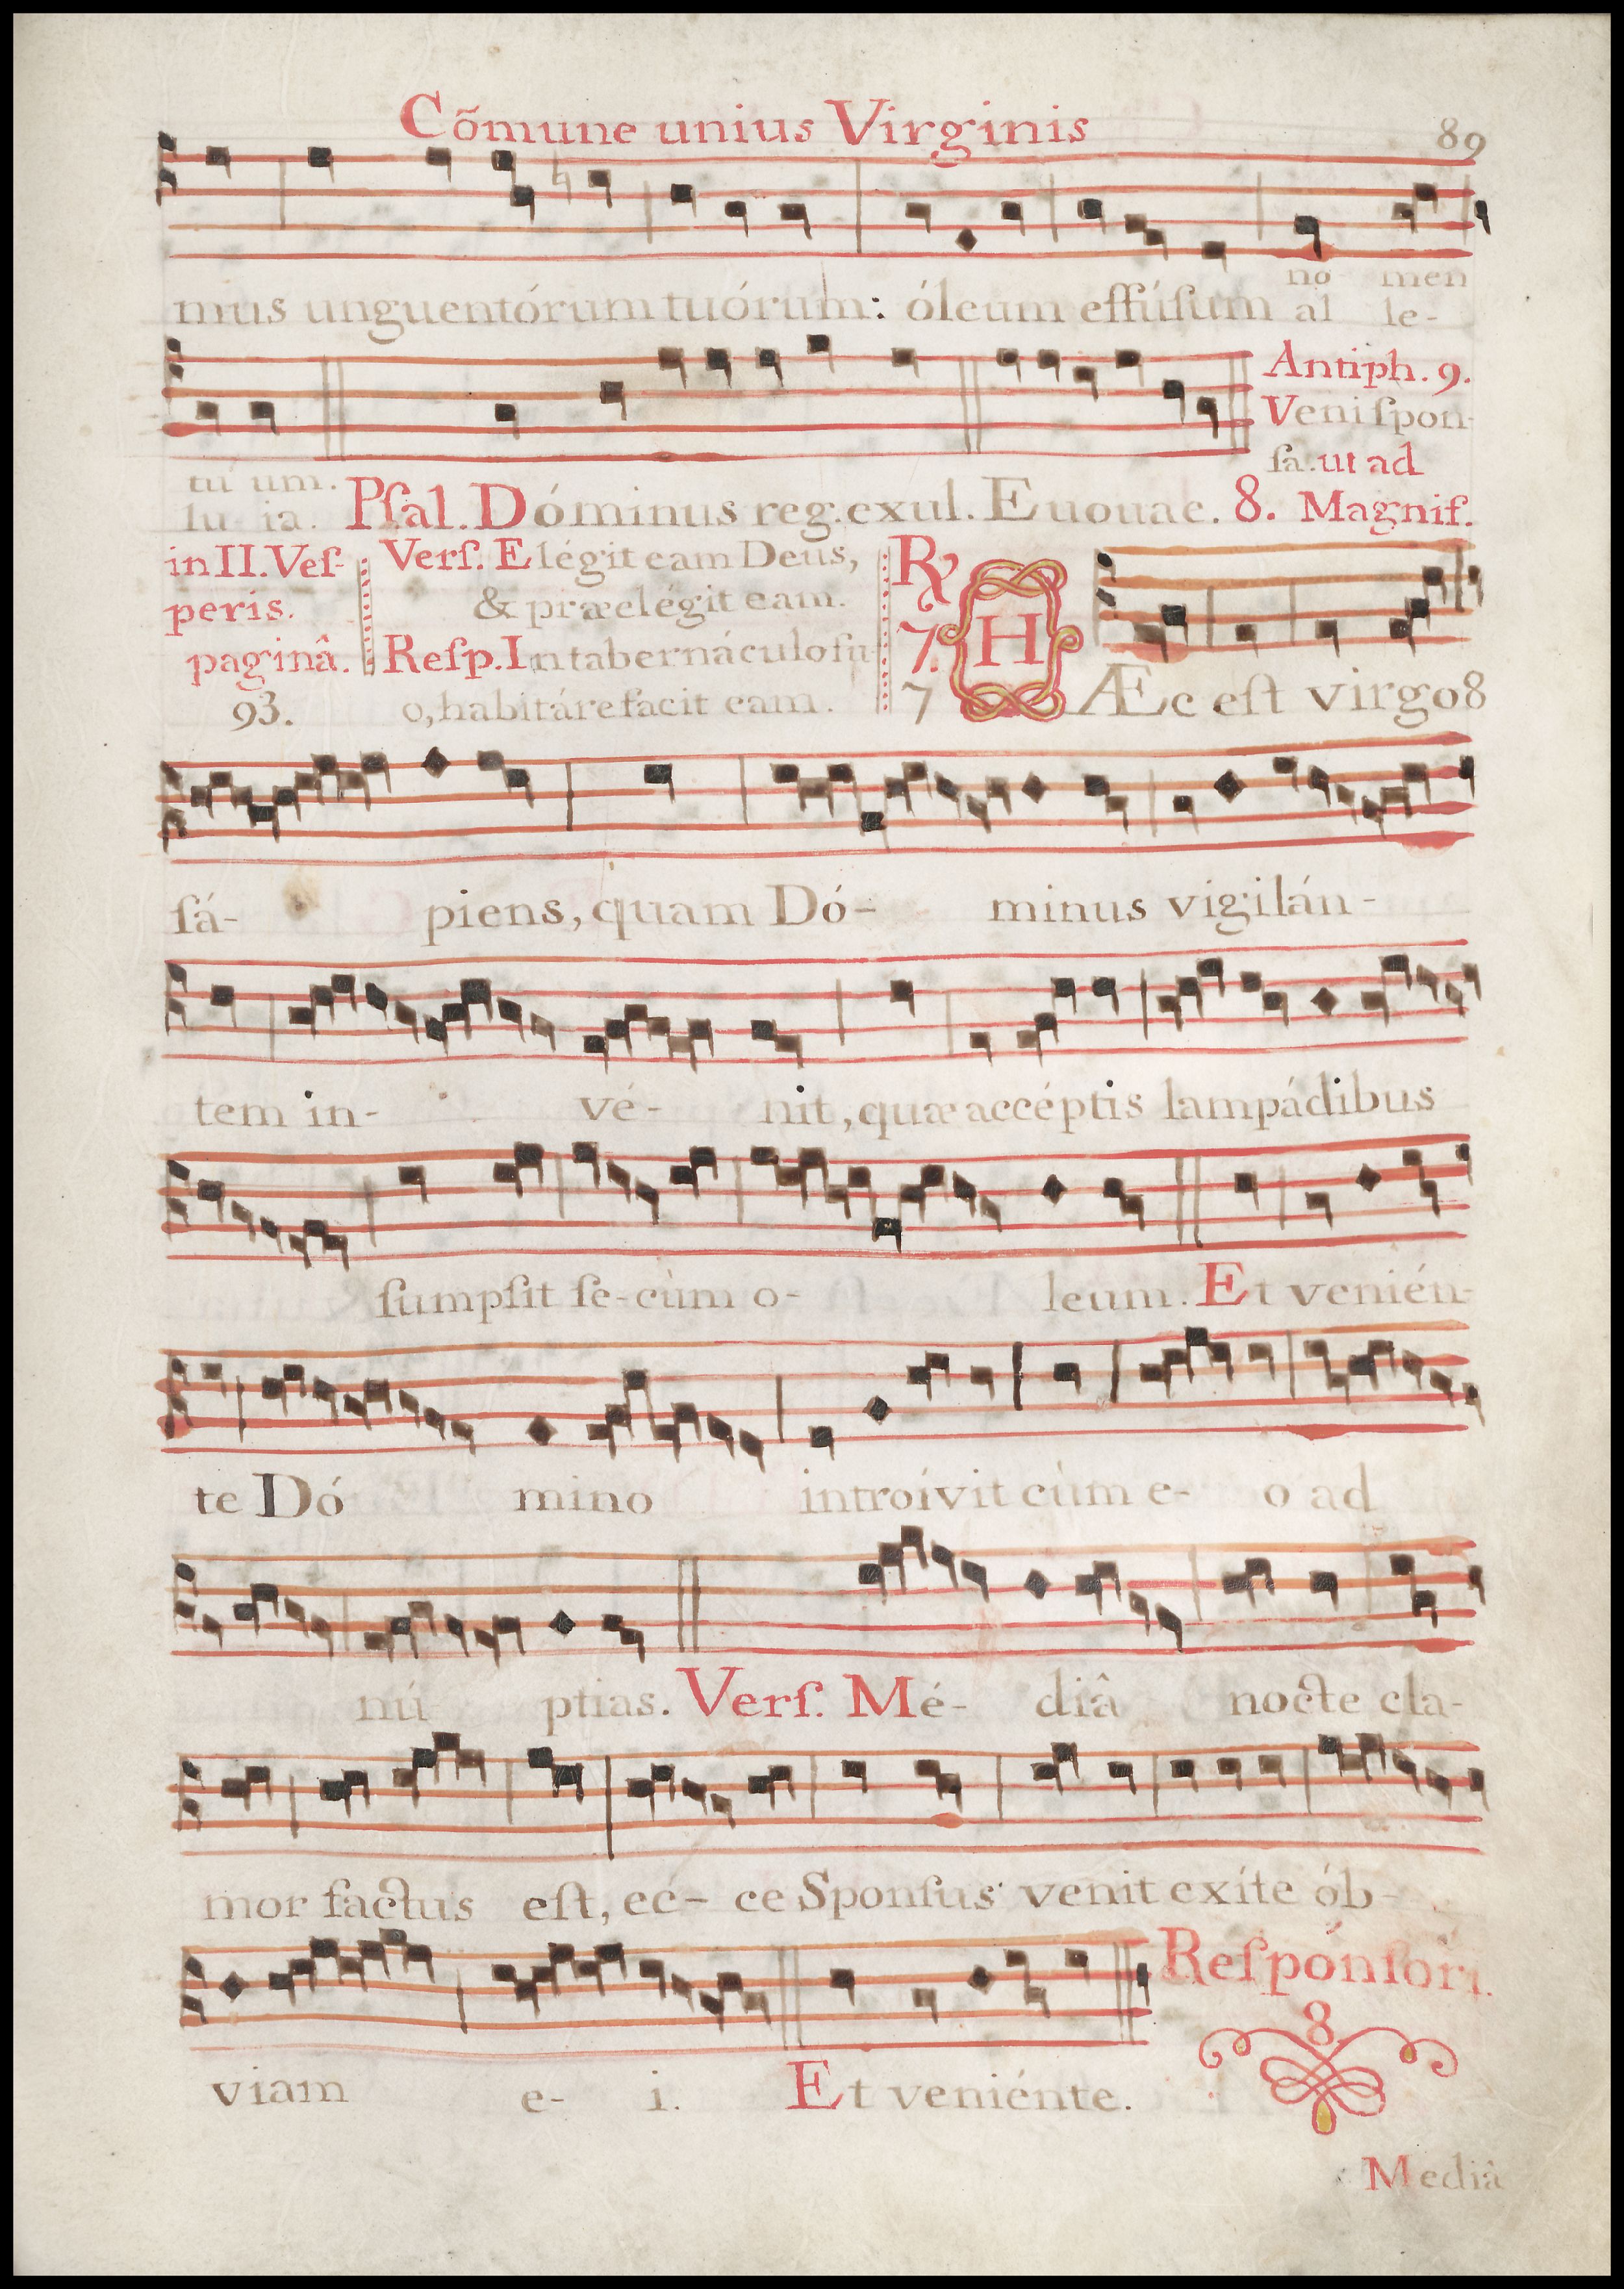 Cõmune unius Virginis
89
mus unguentórum tuórum: óleum effúſum
no- men
al le-
tu um.
lu ia.
Pſal. Dóminus reg. exul. Euouae. 8.
Antiph. 9.
Veni ſpon-
ſa. ut ad
Magnif.
in II. Veſ-
peris.
paginâ.
93.
Verſ. Elégit eam Deus,
& præelégit eam.
Reſp. In tabernáculo ſu-
o, habitáre facit eam.
℟
6
7.
7
HÆc eſt virgo 8
ſá- piens, quam Dó- minus vigilán-
tem in- vé- nit, quæ accéptis lampádibus
ſumpſit ſe-cùm o- leum. Et venién-
te Dó mino introívit cùm e- o ad
nú- ptias. Verſ. Mé- diâ nocte cla-
mor factus eſt, ec- ce Sponſus venit exíte ób-
viam e- i. Et veniénte.
Reſpónſori.
8
Mediâ